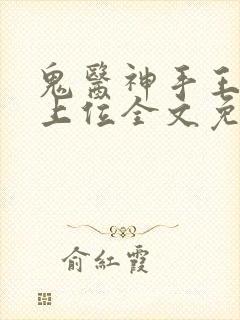 鬼醫神手王
上位全文免
俞紅霞